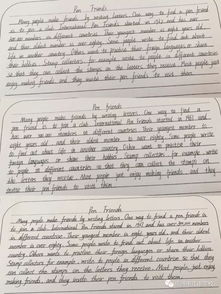 Pen Friends
Many people make friends by writing letters. One way to find a pen friend
is to join a club. International Pen Friends started in 1967 and has over
300,000 members in different countries. Their youngest member is eight years old
and their oldest member is over eighty. Some people write to find out about
life in another country. Others want to practice their foreign languages or share
their hobbies. Stamp collectors for example, write to people in different countries
so that they can collect the stamps on the letters they receive. Most people just
enjoy making friends and they invite their pen friends to visit them.
Pen friends
Many people make friends by writing letters. One way to find a
pen friend is to join a club. International Pen Friends started in 1967 and
has over 300,000 members in different countries. Their youngest member is
eight years old and their oldest member is over eighty. Some people write
to find out about life in another country. Others want to practice their
foreign languages or share their hobbies. Stamp collectors for example, write
to people in different countries so that they can collect the stamps on
the letters they receive. Most people just enjoy making friends, and they
invite their pen friends to visit them.
Pen Friends
Many people make friends by writing letters. One way to find a pen friend is
to join a club. International Pen Friends started in 1967, and has over 300,000 members
in different countries. Their youngest member is eight years old, and their oldest
member is over eighty. Some people write to find out about life in another
country. Others want to practice their foreign languages, or share their hobbies.
Stamp collectors for example, write to people in different countries so that they
can collect the stamps on the letters they receive. Most people just enjoy
making friends, and they invite their pen friends to visit them.